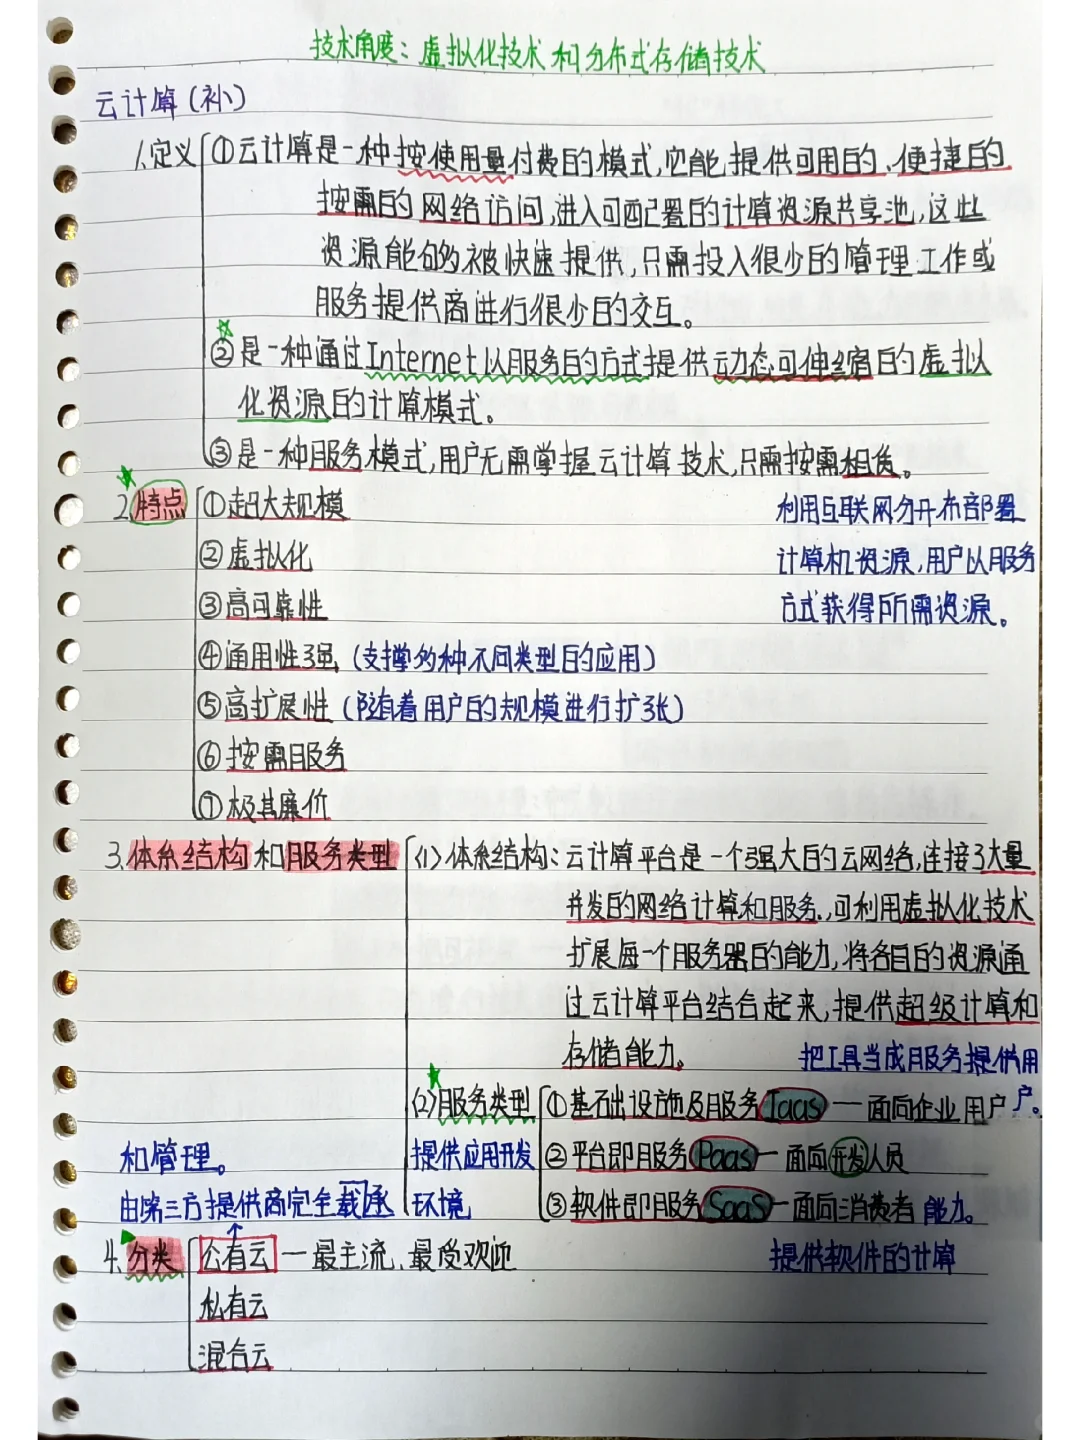 技术角度：虚拟化技术和分布式存储技术
云计算(补)
1.定义 ①云计算是一种按使用量付费的模式,它能提供可用的、便捷的
按需的网络访问,进入可配置的计算资源共享池,这些
资源能够被快速提供,只需投入很少的管理工作或
服务提供商进行很少的交互。
②是一种通过Internet以服务的方式提供动态可伸缩的虚拟
化资源的计算模式。
③是一种服务模式,用户无需掌握云计算技术,只需按需租赁。
2.特点 ①超大规模
利用互联网分布部署
②虚拟化
计算机资源,用户以服务
③高可靠性
方式获得所需资源。
④通用性强 (支撑多种不同类型的应用)
⑤高扩展性 (随着用户的规模进行扩张)
⑥按需服务
⑦极其廉价
3.体系结构和服务类型 (1)体系结构:云计算平台是一个强大的云网络,连接了大量
并发的网络计算和服务,可利用虚拟化技术
扩展每一个服务器的能力,将各自的资源通
过云计算平台结合起来,提供超级计算和
存储能力。
把工具当成服务提供用
户。
(2)服务类型 ①基础设施及服务Iaas—面向企业用户
提供应用开发
环境
②平台即服务Paas—面向开发人员
③软件即服务SaaS—面向消费者
能力。
提供软件的计算
和管理。
由第三方提供商完全载承
4.分类 公有云—最主流、最受欢迎
私有云
混合云